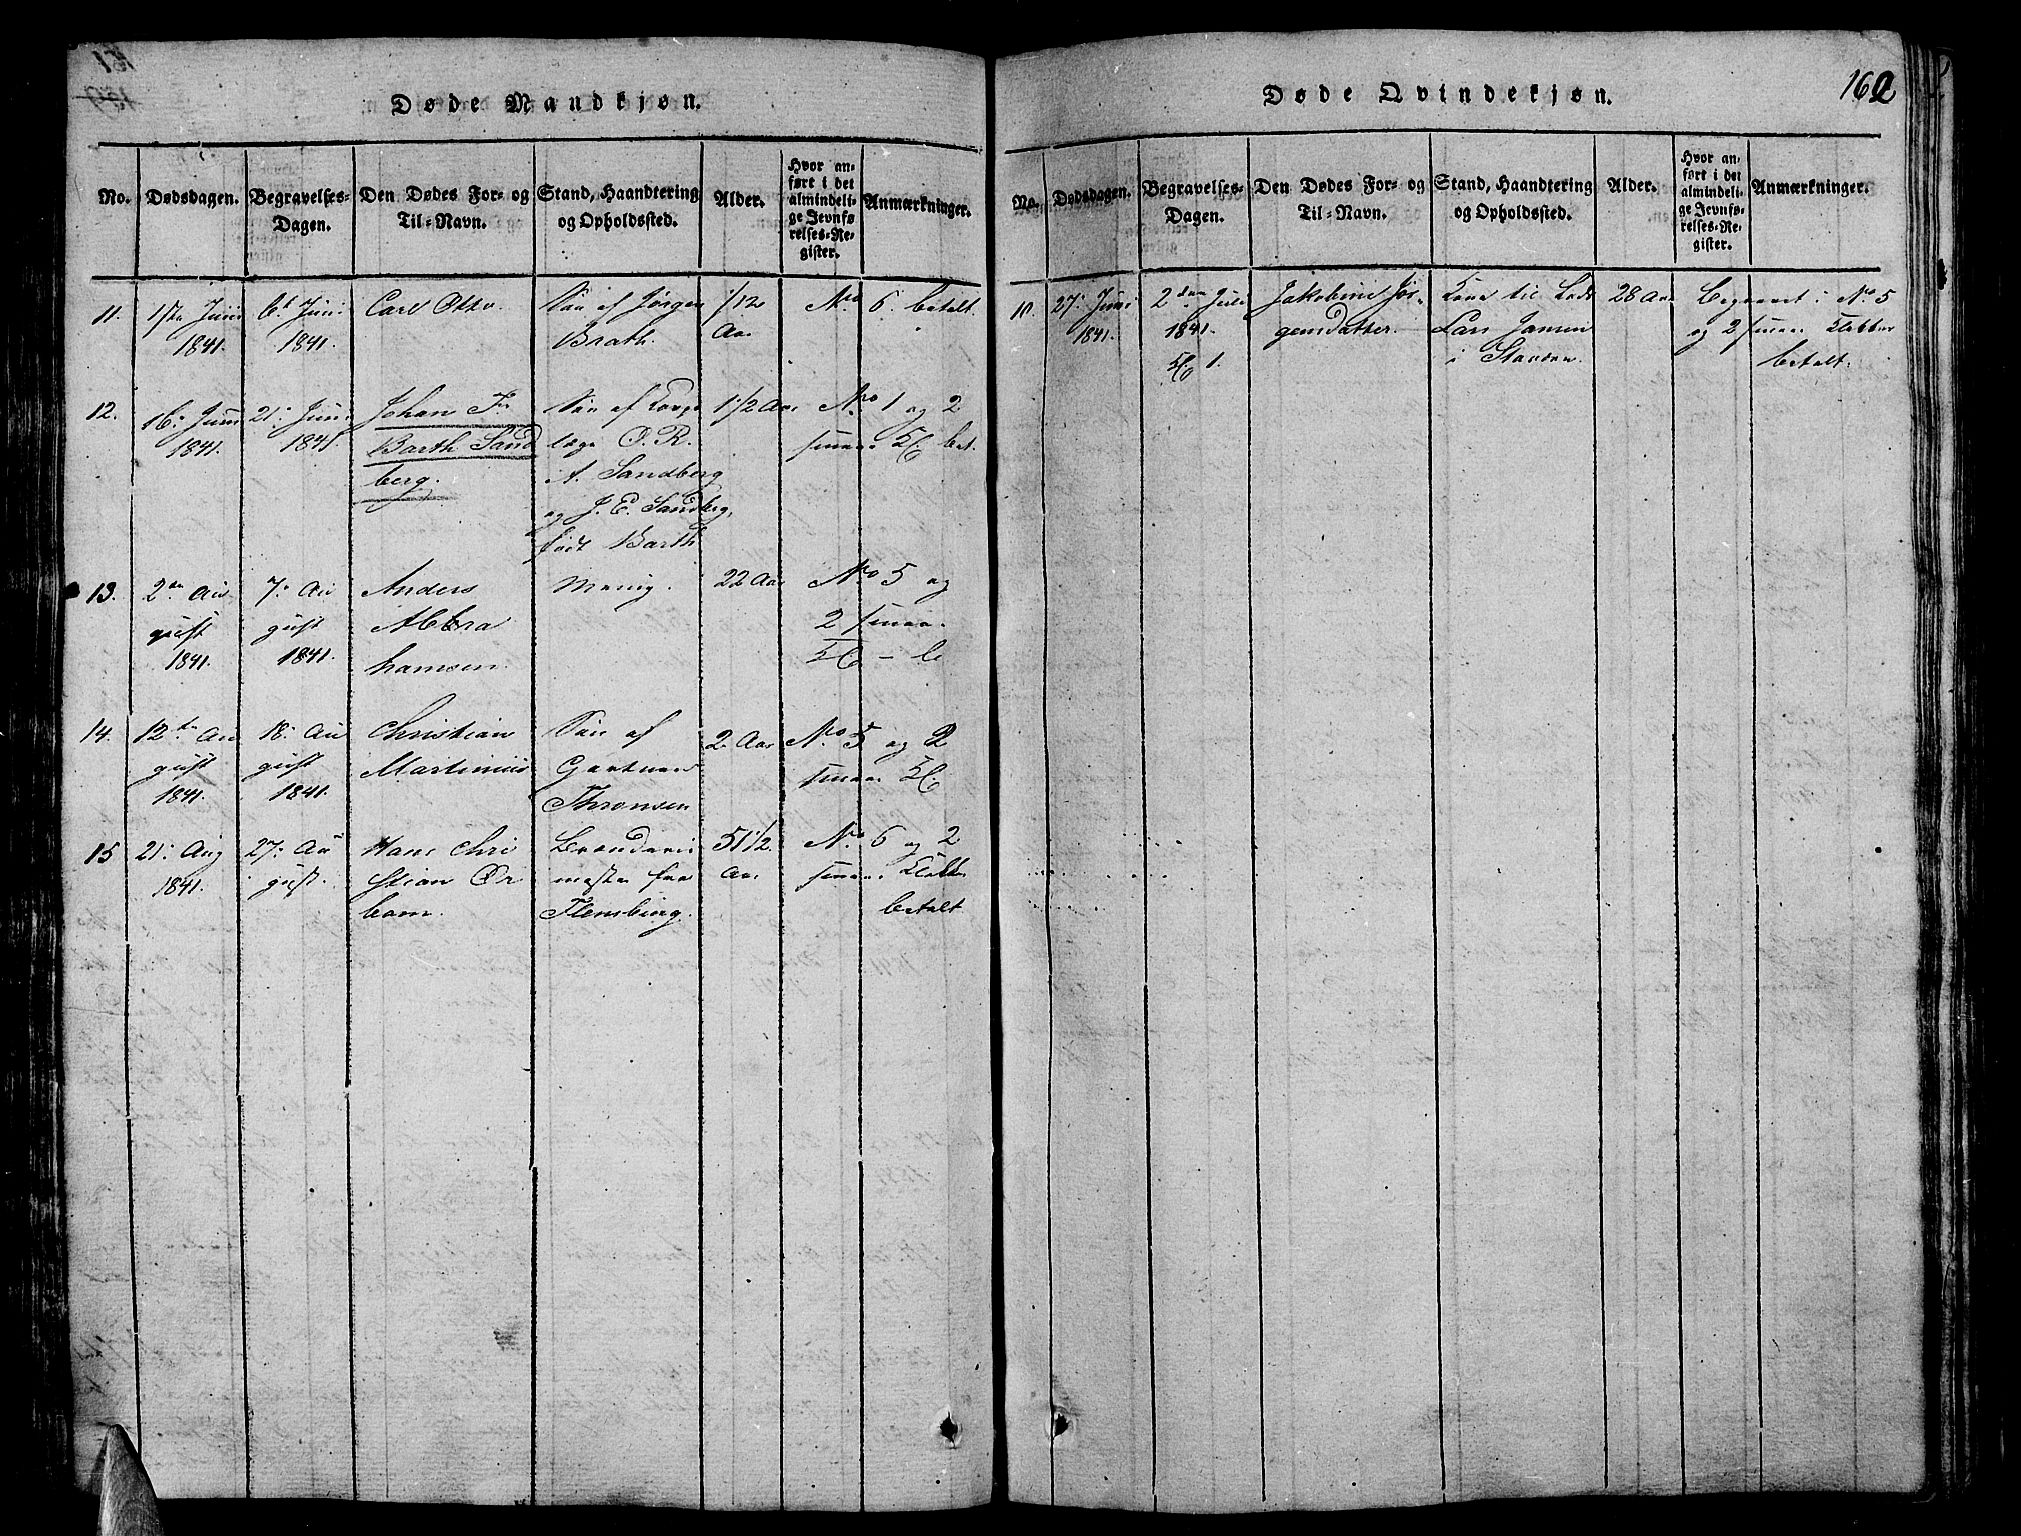 Døde Mandkjøn.
No.
Dødsdagen.
Begravelses-
Dagen.
Den Dødes For- og
Til-Navn.
Stand, Haandtering
og Opholdssted.
Alder.
Hvor an-
ført i det
almindeli-
ge Jevnfø-
relses-Re-
gister.
Anmærkninger.
11.
1ste Juni
1841.
6t Juni
1841.
Carl Otto.
Søn af Jørgen
Brath.
1/12
Aar
No 6. betalt.
12.
16: Juni
1841.
21: Juni
1841.
Johan Fr
Barth Sand
berg.
Søn af Korps
læge O. R.
A. Sandberg
og J. E. Sandberg,
født Barth
1 1/2 Aar
No 1 og 2
smaa Kl. bet.
13.
2en Au
gust
1841.
7: Au
gust
1841.
Anders
Abra
hamsen.
Menig.
22 Aar
No 5 og
2 smaa
Kl. - b
14.
12te Au
gust
1841.
18: Au
gust
1841.
Christian
Martinius
Søn af
Gartner
Thronsen
2 Aar
No 5 og 2
smaa Kl.
15
21: Aug
1841.
27: Au
gust.
Hans Chri
stian Ør
bom.
mester fra
Flensburg.
51 1/2
Aar
No 6 og 2
smaa Klokker
betalt
Døde Qvindekjøn.
162
No.
Dødsdagen.
Begravelses-
Dagen.
Den Dødes For- og
Til-Navn.
Stand, Haandtering
og Opholdssted.
Alder.
Hvor an-
ført i det
almindeli-
ge Jevnfø-
relses-Re-
gister.
Anmærkninger.
10.
27: Juni
1841.
2den Juli
1841.
Kl. 1.
Jakobine Jør-
gensdatter.
Kone til Lods
Lars Jansen
i Stavern
28 Aar
Begravet i No 5
og 2 smaa Klokker
betalt.